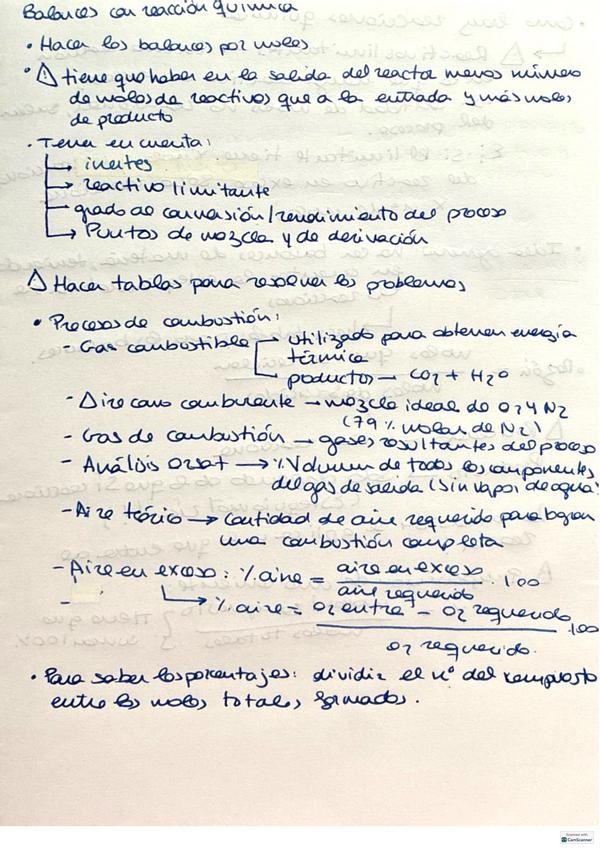 Balances con reacción química
• Hacer los balances por moles
• ⚠ tiene que haber en la salida del reactor menos número
de moles de reactivos que a la entrada y más moles
de producto
• Tener en cuenta:
→ inertes
→ reactivo limitante
→ grado de conversión/rendimiento del proceso
→ Puntos de mezcla y de derivación
⚠ Hacer tablas para resolver los problemas
• Procesos de combustión:
- Gas combustible → utilizado para obtener energía
térmica
productos → CO2 + H2O
- Aire como comburente → mezcla ideal de O2 y N2
(79% molar de N2)
- Gas de combustión → gases resultantes del proceso
- Análisis Orsat → % Volumen de todos los componentes
del gas de salida (sin vapor de agua)
- Aire teórico → cantidad de aire requerido para
una combustión completa
- Aire en exceso: % aire = aire en exceso / aire requerido · 100
-
→ % aire = O2 entra - O2 requerido / O2 requerido · 100
• Para saber los porcentajes: dividir el nº del compuesto
entre los moles totales formados.
Scanned with
CamScanner